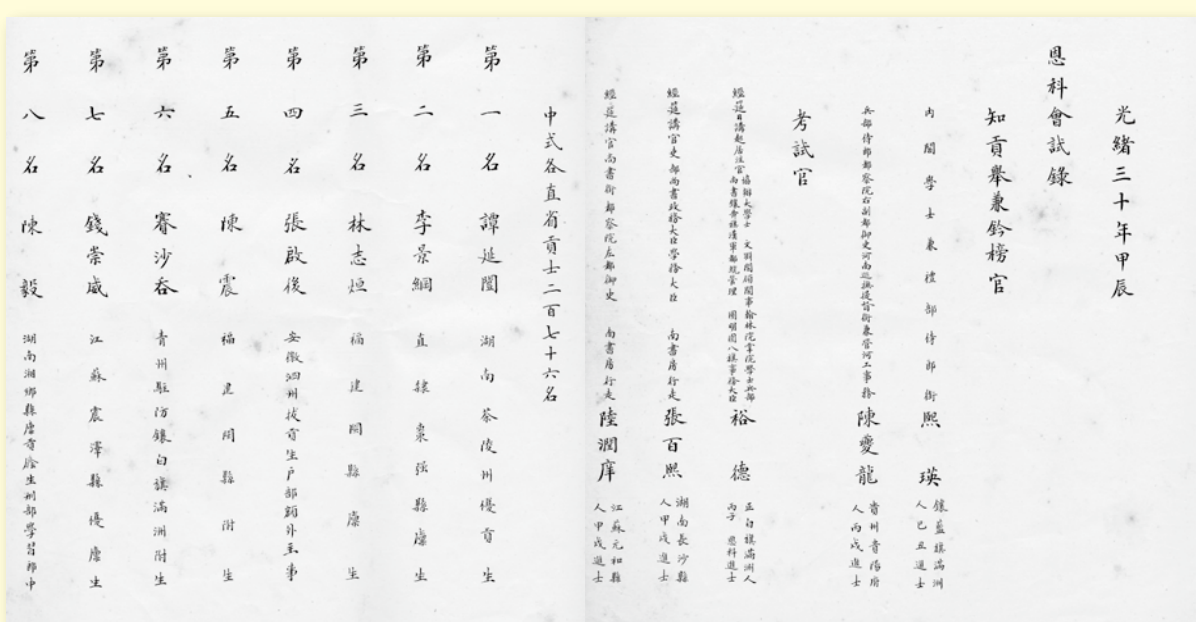 光緒三十年甲辰
恩科會試錄
知貢舉兼鈐榜官
內閣學士兼禮部侍郎銜熙瑛鑲藍旗滿洲人己丑進士
兵部侍郎都察院右副都御史河南巡撫提督銜兼管河工事務陳夔龍貴州貴陽府人丙戌進士
考試官
經筵日講起居注官協辦大學士文淵閣領閣事翰林院掌院學士兵部尚書鑲黃旗漢軍都統管理圓明園八旗事務大臣裕德正白旗滿洲人丙子恩科進士
經筵講官吏部尚書政務大臣學務大臣南書房行走張百熙湖南長沙縣人甲戌進士
經筵講官尚書銜都察院左都御史南書房行走陸潤庠江蘇元和縣人甲戌進士
中式各直省貢士二百七十六名
第一名譚延闓湖南茶陵州優貢生
第二名李景綱直隸棗強縣廩生
第三名林志烜福建閩縣廩生
第四名張啟後安徽泗州拔貢生戶部額外主事
第五名陳震福建閩縣附生
第六名賽沙吞青州駐防鑲白旗滿洲附生
第七名錢崇威江蘇震澤縣優廩生
第八名陳毅湖南湘鄉縣廩貢廕生刑部學習郎中